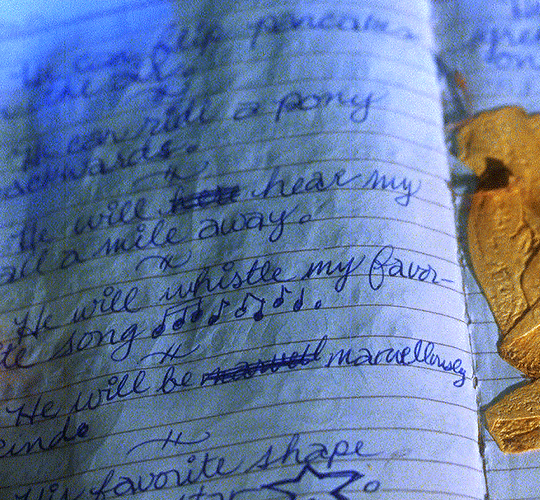 He can flip pancakes
in the air.
He can ride a pony
backwards.
He will hear my
call a mile away.
He will whistle my favor-
ite song
He will be marvellously
kind.
His favorite shape